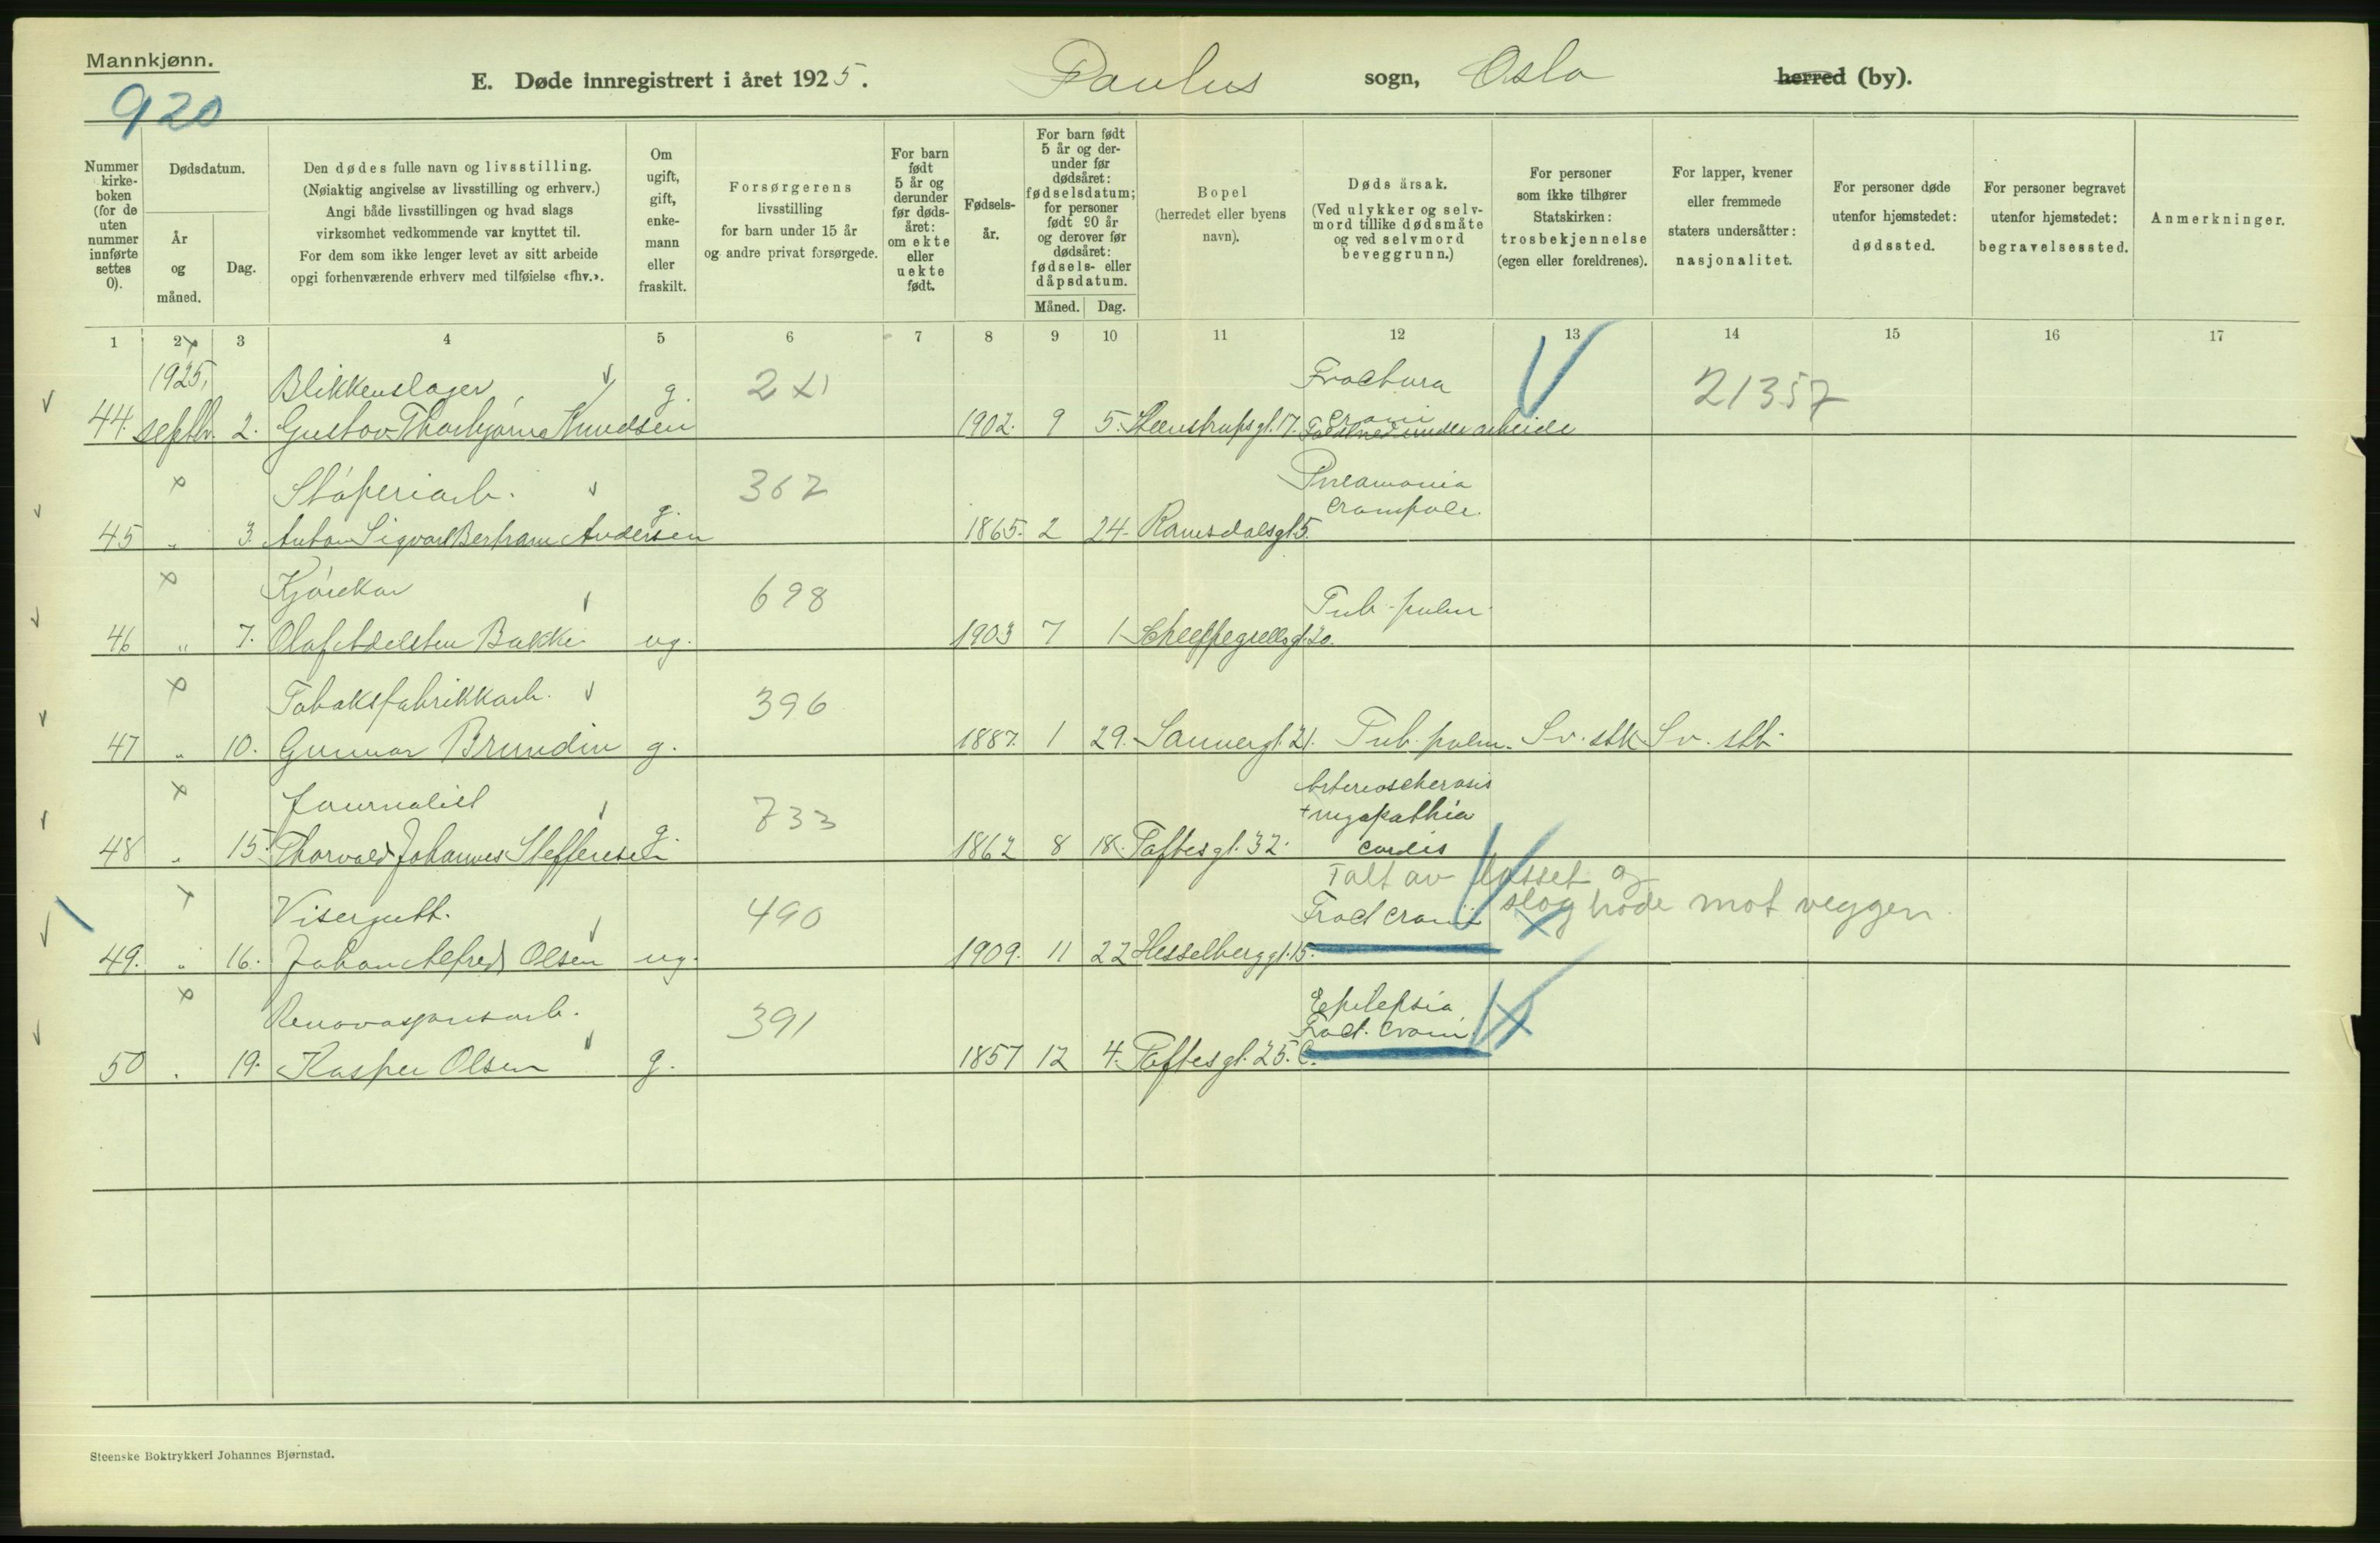 Mannkjønn.
920
E. Døde innregistrert i året 1925. Paulus sogn, Oslo herred (by).
Nummer kirke-boken (for de uten nummer innførte settes 0).
Dødsdatum.
År og måned.
Dag.
Den dødes fulle navn og livsstilling.
(Nøiaktig angivelse av livsstilling og erhverv.)
Angi både livsstillingen og hvad slags
virksomhet vedkommende var knyttet til.
For dem som ikke lenger levet av sitt arbeide
opgi forhenværende erhverv med tilføielse «fhv.».
Om ugift, gift, enke-mann eller fraskilt.
Forsørgerens
livsstilling
for barn under 15 år
og andre privat forsørgede.
For barn født 5 år og derunder før døds-året: om ekte eller uekte født.
Fødsels-år.
For barn født 5 år og der-under før dødsåret: fødselsdatum; for personer født 90 år og derover før dødsåret: fødsels- eller dåpsdatum.
Måned. Dag.
Bopel
(herredet eller byens
navn).
Dødsårsak.
(Ved ulykker og selv-
mord tillike dødsmåte
og ved selvmord
beveggrunn.)
For personer
som ikke tilhører
Statskirken:
trosbekjennelse
(egen eller foreldrenes).
For lapper, kvener
eller fremmede
staters undersåtter:
nasjonalitet.
For personer døde
utenfor hjemstedet:
dødssted.
For personer begravet
utenfor hjemstedet:
begravelsessted.
Anmerkninger.
1 2 3 4 5 6 7 8 9 10 11 12 13 14 15 16 17
1925, Blikkenslager g. Fractura 21357
44. septbr. 2. Gustav Thorbjørn Knudsen 1902. 9 5. Steenstrupsgt. 17. crani
Falt ned under arbeide
Støperiarb. 367 Pneumonia
crouposa.
45 " 3. Anton Sigvard Bertram Andersen g. 1865. 2 24. Romsdalsgt 5.
Kjørekar 698 Tub. pulm.
46 " 7. Olaf Adelsten Bakke ug. 1903 7 1 Scheppegrellsgt. 20.
Tobaksfabrikkarb. 396
47 " 10. Gunnar Brundin g. 1887. 1 29. Sannergt. 21. Tub. pulm. Sv. stk. Sv. stb.
Journalist 733 Arterioscherosis
+ myopathia
48 " 15. Thorvald Johannes Steffensen g. 1862 8 18. Toftesgt. 32. cordis
Falt av lasset og
slog hode mot veggen
Visergutt. 490 Fract crani
49. " 16. Johan Alfred Olsen ug. 1909. 11 22 Hesselberggt. 15.
Renovasjonsarb. 391 Epilepsia
Fract. crani
50 " 19. Kasper Olsen g. 1857 12 4. Toftesgt. 25. C.
Steenske Boktrykkeri Johannes Bjørnstad.